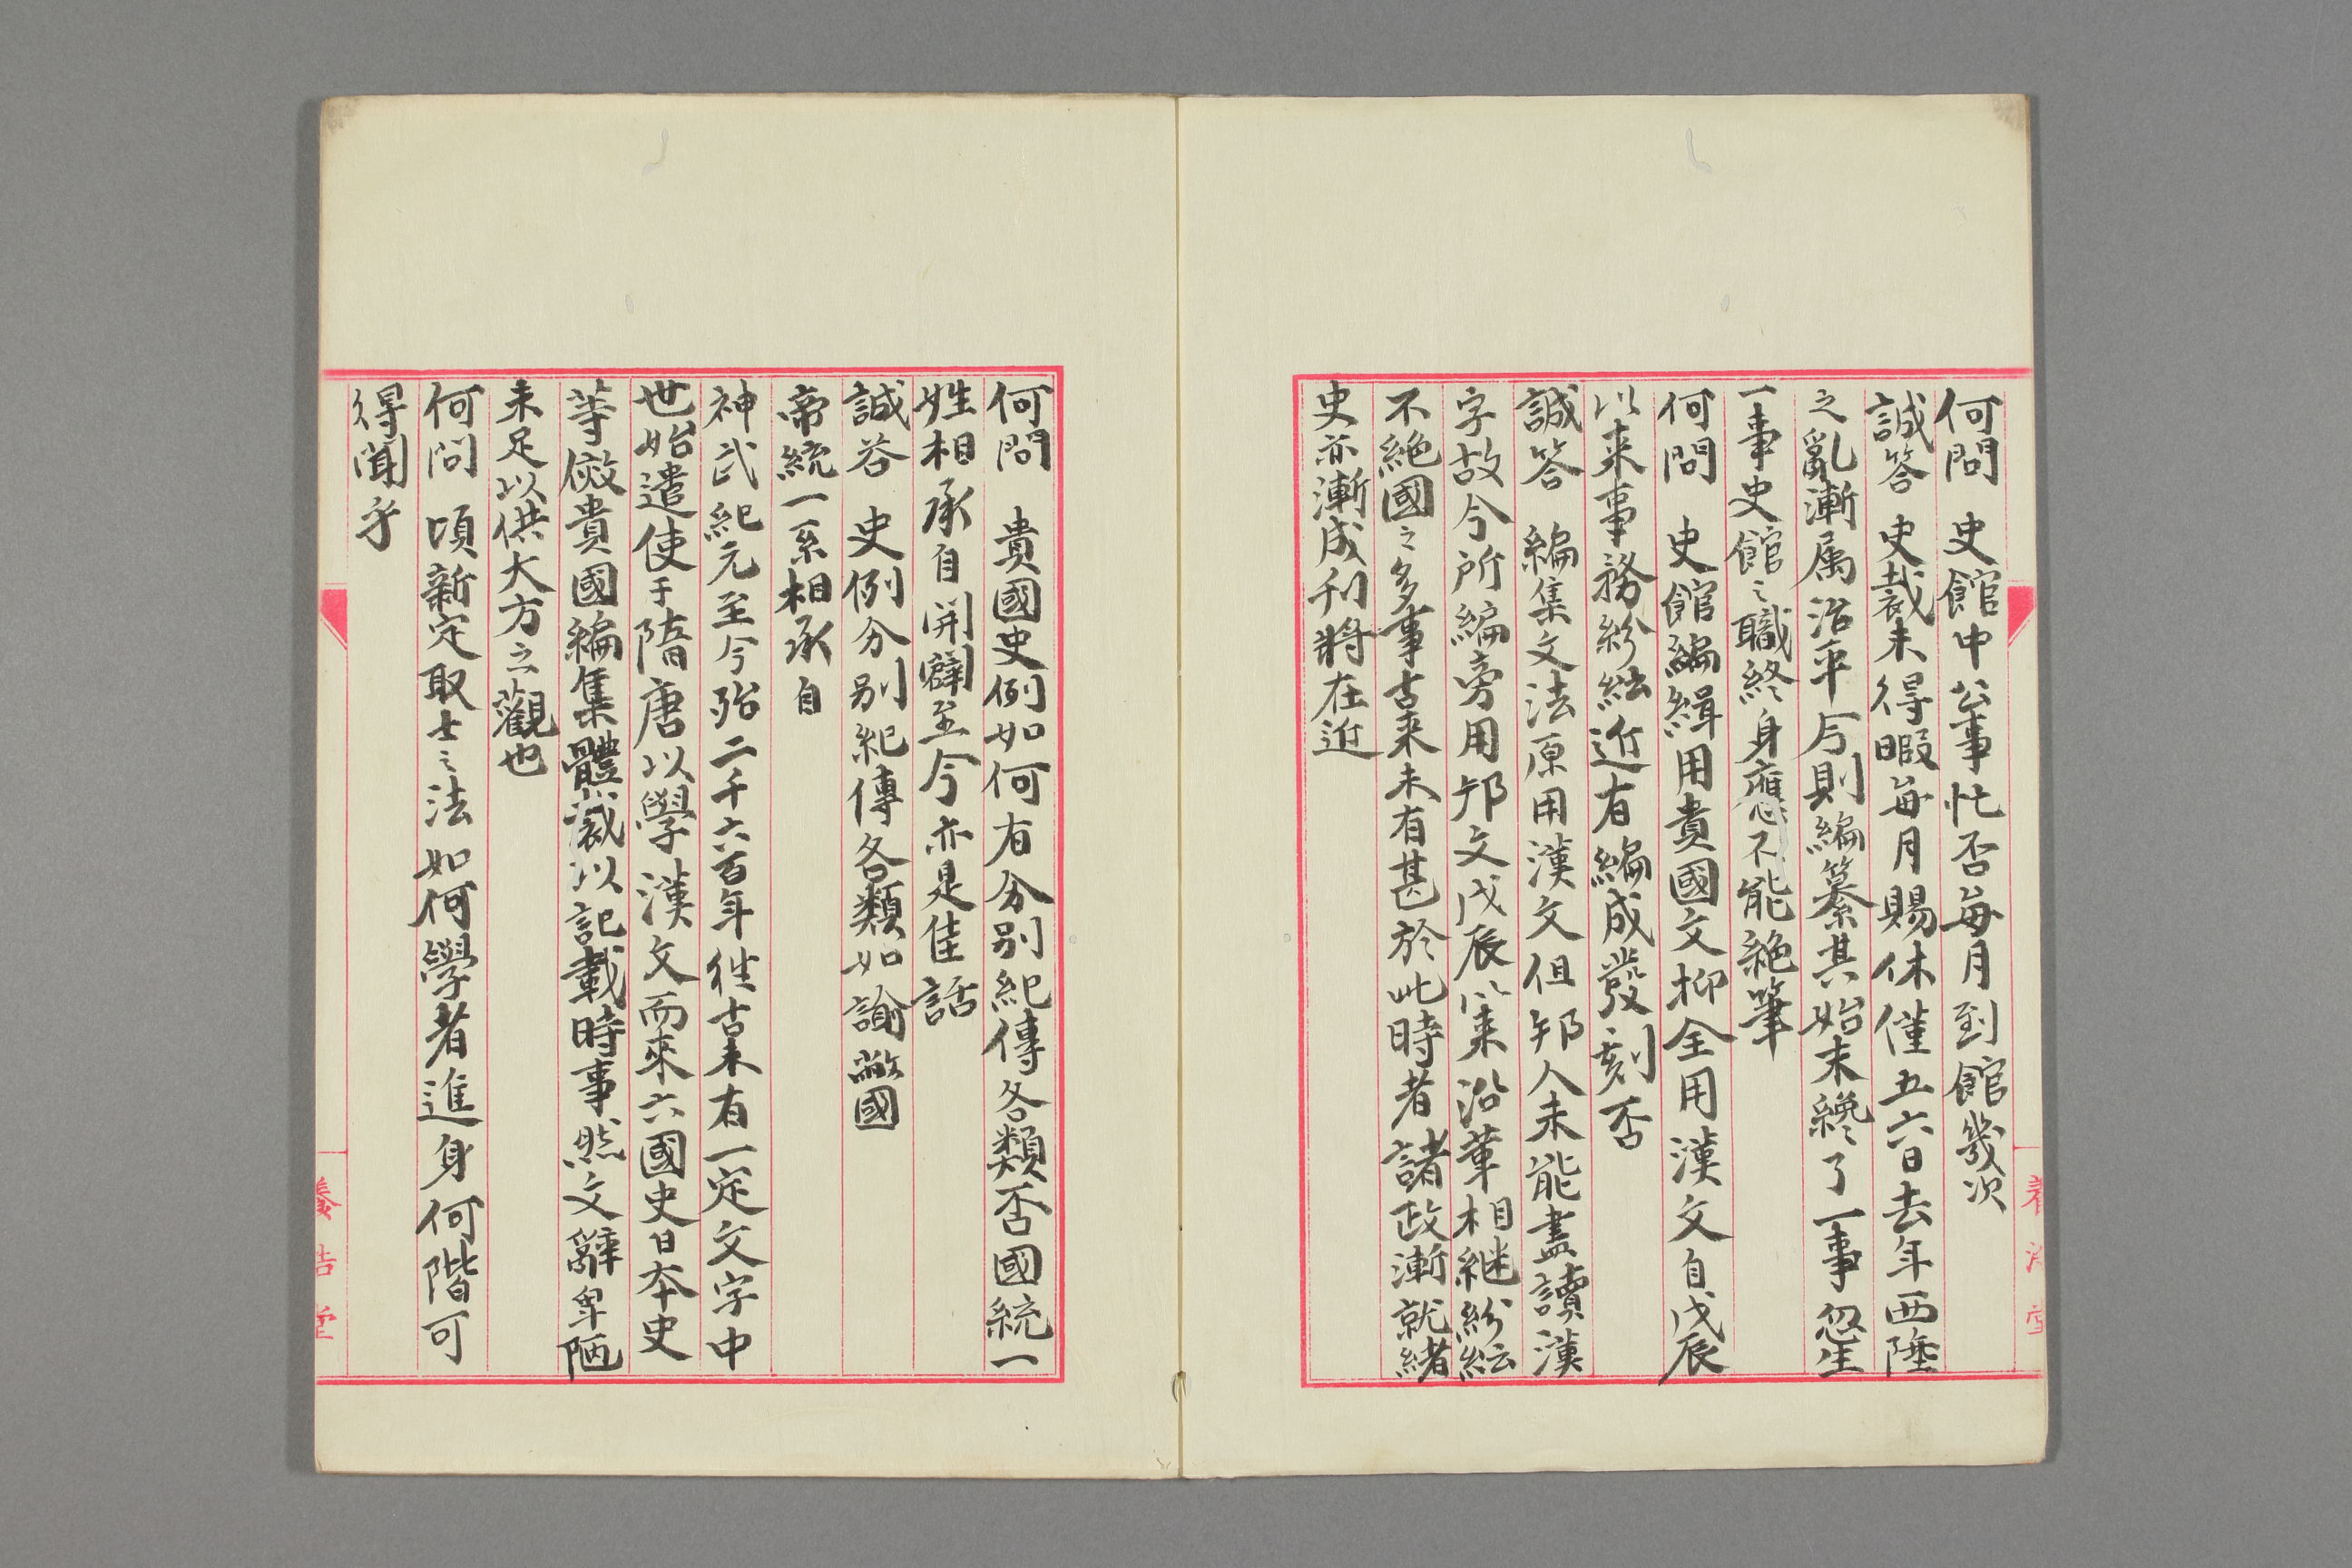 何問　史館中公事忙否每月到館幾次
誠答　史裁未得暇每月賜休僅五六日去年西陲
之亂漸属治平今則編纂其始末纔了一事忽生
一事史館之職終身應不能絶筆
何問　史館編緝用貴國文抑全用漢文自戊辰
以来事務紛紜近有編成發刻否
誠答　編集文法原用漢文但邦人未能盡讀漢
字故今所編旁用邦文戊辰以来沿革相継紛紜
不絶國之多事古来未有甚於此時者諸政漸就緒
史亦漸成刊将在近
何問　貴國史例如何有分别紀傳各類否國統一
姓相承自開闢至今亦是佳話
誠答　史例分别紀傳各類如諭敝國
帝統一系相承自
神武紀元至今殆二千六百年徃古未有一定文字中
世始遣使于隋唐以學漢文而來六國史日本史
等倣貴國編集體裁以記載時事然文辭卑陋
未足以供大方之觀也
何問　頃新定取士之法如何學者進身何階可
得聞乎